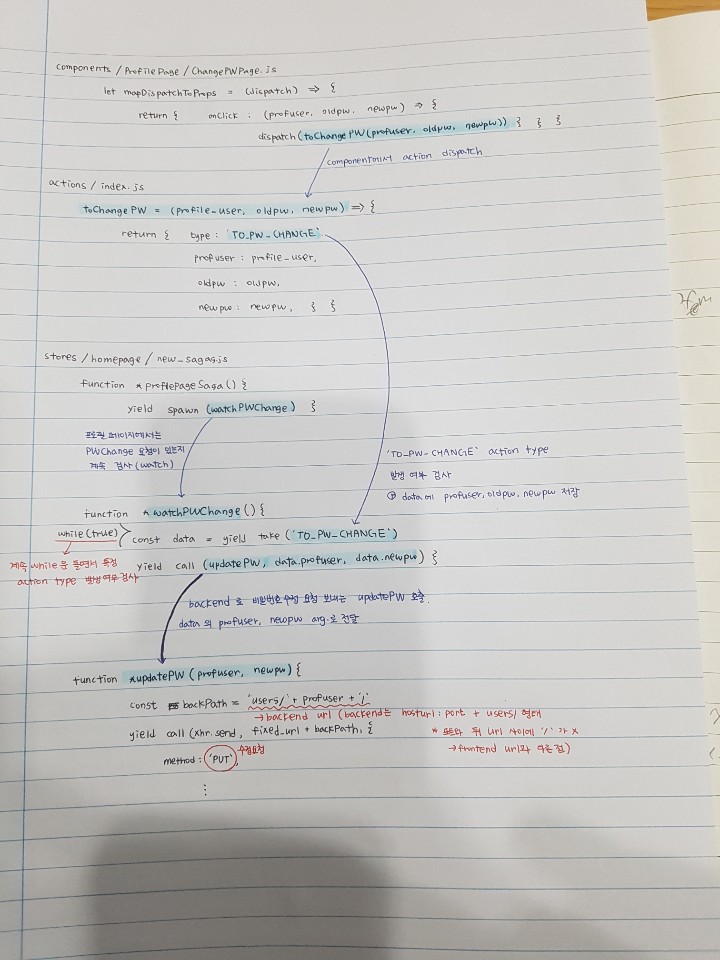 components / ProfilePage / ChangePWPage.js
let mapDispatchToProps = (dispatch) => {
return { onClick : (profuser, oldpw, newpw) => {
dispatch(toChangePW(profuser, oldpw, newpw)) } } }
component에서 action dispatch
actions / index.js
toChangePW = (profile-user, oldpw, newpw) => {
return { type : 'TO_PW_CHANGE'
profuser : profile-user,
oldpw : oldpw,
newpw : newpw, } }
stores / homepage / new_sagas.js
function *profilePageSaga() {
yield spawn (watchPWChange) }
프로필 페이지에서는
PWChange 요청이 있는지
계속 검사 (watch)
'TO_PW-CHANGE' action type
발생 여부 검사
data에 profuser, oldpw, newpw 저장
function *watchPWChange() {
while(true) const data = yield take ('TO_PW_CHANGE')
계속 while을 돌면서 특정
action type 발생여부 검사
yield call (updatePW, data.profuser, data.newpw) }
backend로 비밀번호 수정 요청 보내는 updatePW 호출.
data의 profuser, newpw arg.로 전달
function *updatePW (profuser, newpw) {
const backPath = 'users/' + profuser + '/'
→ backend url (backend는 hosturl : port + users/ 형태
yield call (xhr.send, fixed_url + backPath, {
* 포트와 뒤 url 사이에 '/' 가 x
→ frontend url과 다른 점)
method : 'PUT', 수정요청
⋮